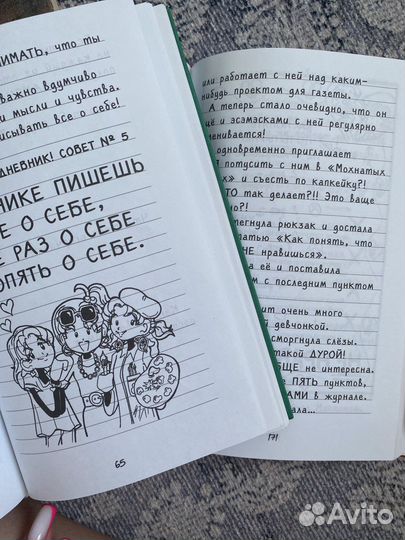 ИМАТЬ, что ты
важно вдумчиво
и мысли и чувства.
исывать все о себе!
ДНЕВНИК! СОВЕТ № 5
НИКЕ ПИШЕШЬ
Е О СЕБЕ,
Е РАЗ О СЕБЕ
ОПЯТЬ О СЕБЕ.
65
или работает с ней над каким-
нибудь проектом для газеты.
А теперь стало очевидно, что он
ещё и эсэмэсками с ней регулярно
менивается!
одновременно приглашает
потусить с ним в «Мохнатых
х» и съесть по капкейку?!
ТО так делает?!! Это ваще
но?!
тегнула рюкзак и достала
татью «Как понять, что
НЕ нравишься».
а её и поставила
м с последним пунктом
ит очень много
девчонкой.
сморгнула слёзы.
такой ДУРОЙ!
БЩЕ не интересна.
е ПЯТЬ пунктов,
АМИ в журнале.
ала...
171
Avito